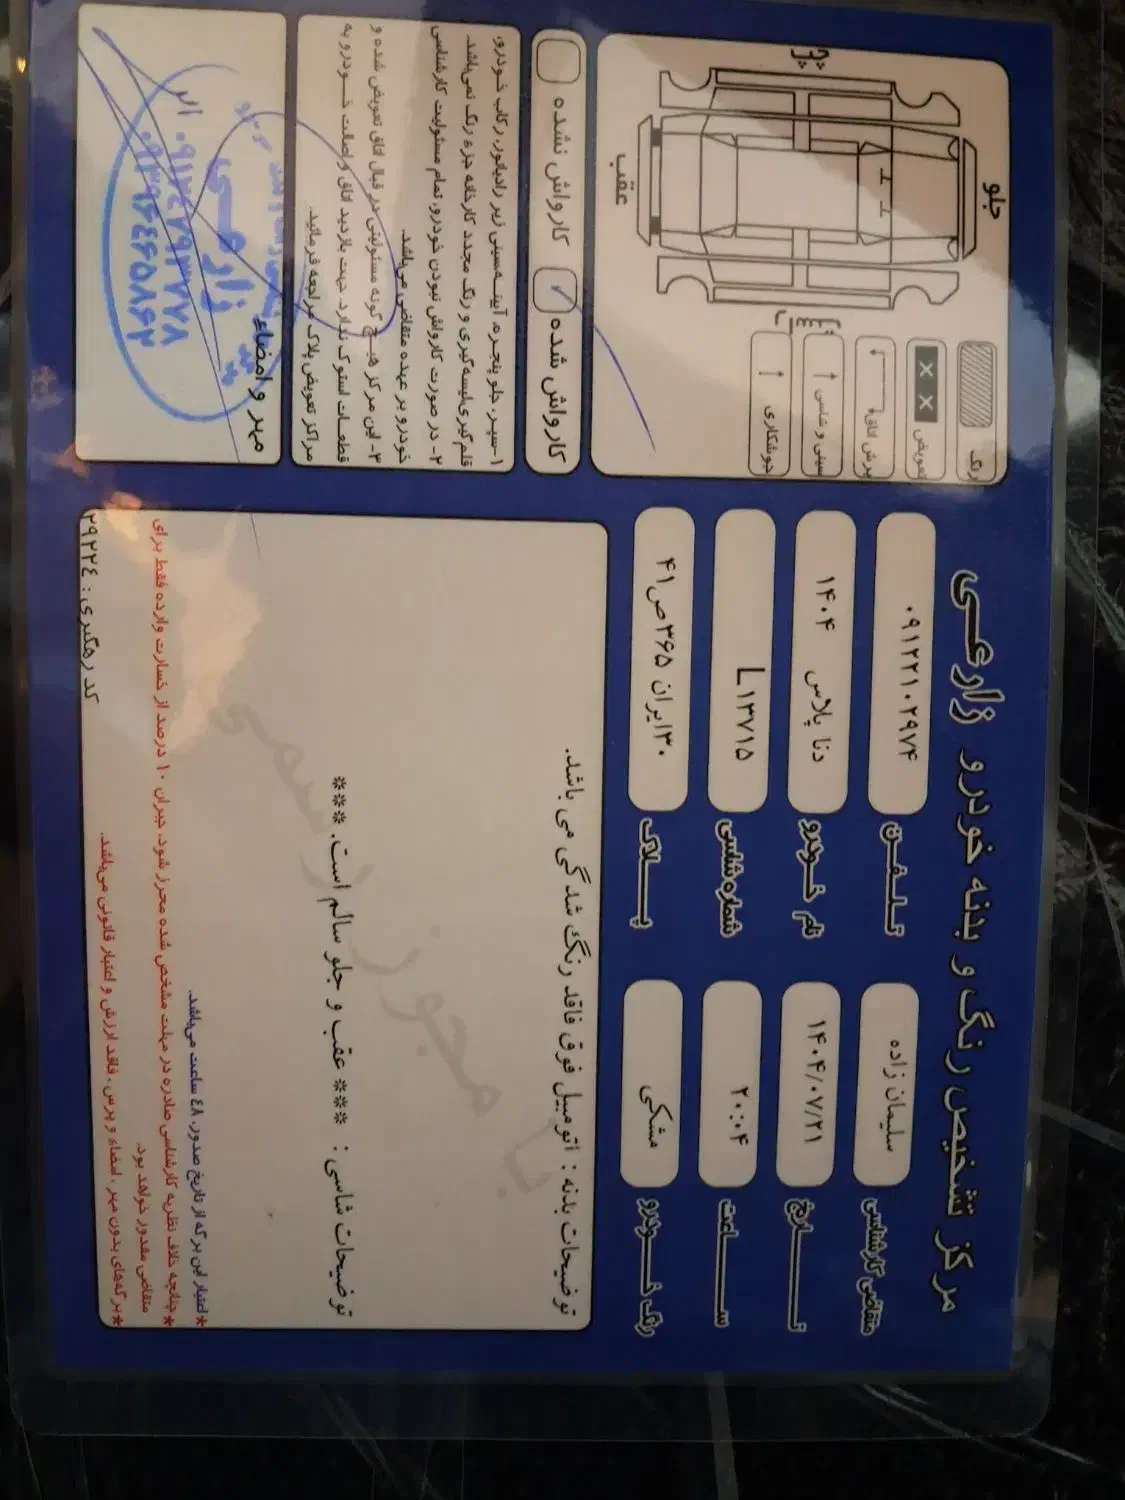 مرکز تشخیص رنگ و بدنه خودرو زارعی
متقاضی کارشناسی
سلیمان زاده
تلفن
۰۹۱۲۲۱۰۲۹۷۴
تاریخ
۱۴۰۴/۰۷/۲۱
نام خودرو
دنا پلاس ۱۴۰۴
ساعت
۲۰:۰۴
شماره شاسی
L۱۳۷۱۵
رنگ خودرو
مشکی
پلاک
۳۰ایران ۳۶۵ص۴۱
توضیحات بدنه : اتومبیل فوق فاقد رنگ شدگی می باشد.
توضیحات شاسی : *** عقب و جلو سالم است. ***
*اعتبار این برگه از تاریخ صدور، ٤٨ ساعت می‌باشد.
*چنانچه خلاف نظریه کارشناسی صادره در مهلت مشخص شده محرز شود، جبران ۱۰ درصد از خسارت وارده فقط برای
متقاضی مقدور خواهد بود.
*برگه‌های بدون مهر، امضاء و پرس، فاقد ارزش و اعتبار قانونی می‌باشد.
کد رهگیری : ۲۹۲۲٤
جلو
عقب
رنگ
تعویض
برش اتاق
سینی و شاسی
جوشکاری
کارواش شده
کارواش نشده
۱-سپر، جلو پنجره، آینه، سینی زیر رادیاتور، رکاب خودرو،
قلم‌گیری، لیسه‌گیری و رنگ مجدد کارخانه جزء رنگ نمی‌باشد.
۲- در صورت کارواش نبودن خودرو، تمام مسئولیت کارشناسی
خودرو بر عهده متقاضی می‌باشد.
۳- این مرکز هیچ گونه مسئولیتی در قبال اتاق تعویض شده و
قطعات استوک ندارد. جهت بازدید اتاق و اصالت خودرو به
مراکز تعویض پلاک مراجعه فرمائید.
مهر و امضاء
زارعی
۰۹۱۲٤۷۹۳۷۷۸
۰۹۳۹٦٤٦٥٨٦٢